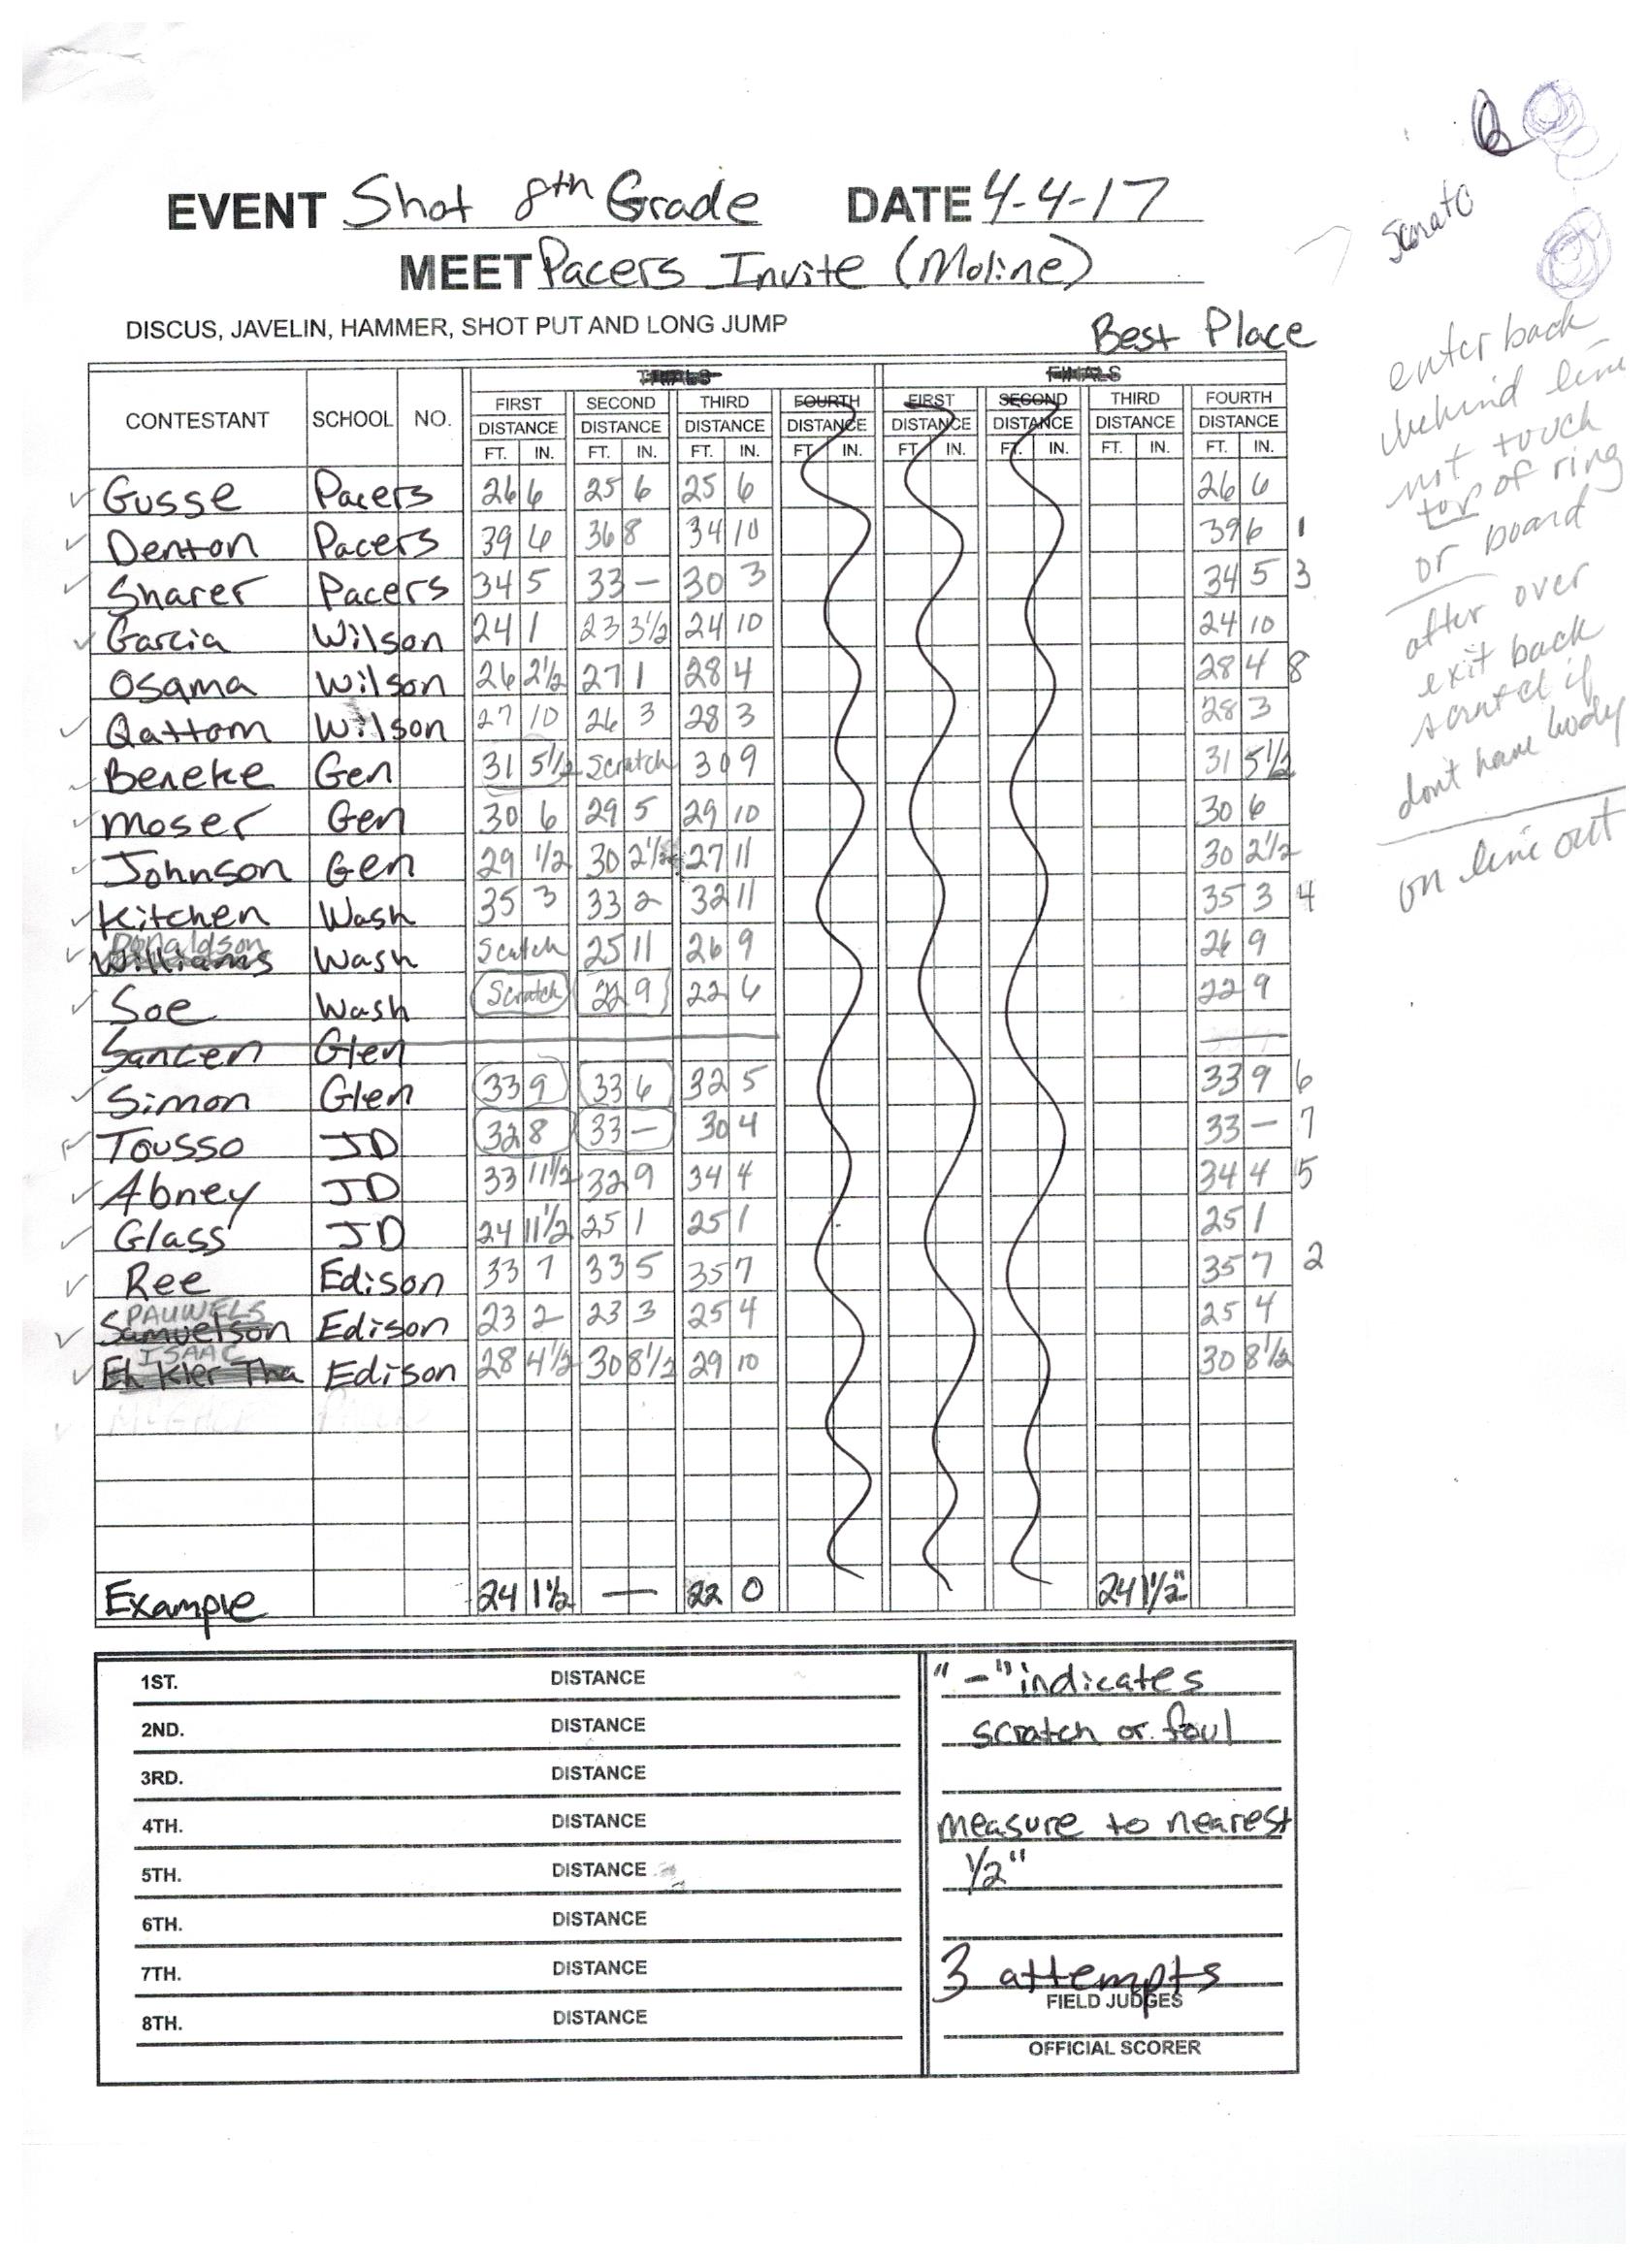 EVENT Shot 8th Grade DATE 4-4-17
MEET Pacers Invite (Moline)
DISCUS, JAVELIN, HAMMER, SHOT PUT AND LONG JUMP
Best Place
TRIALS FINALS
CONTESTANT SCHOOL NO. FIRST SECOND THIRD FOURTH FIRST SECOND THIRD FOURTH
DISTANCE DISTANCE DISTANCE DISTANCE DISTANCE DISTANCE DISTANCE DISTANCE
FT. IN. FT. IN. FT. IN. FT. IN. IN. FT. IN. FT. IN. FT. IN.
Gusse Pacers 26 6 25 6 25 6 26 6
Denton Pacers 39 6 36 8 34 10 39 6 1
Sharer Pacers 34 5 33 — 30 3 34 5 3
Garcia Wilson 24 1 23 3½ 24 10 24 10
Osama Wilson 26 2½ 27 1 28 4 28 4 8
Qattom Wilson 27 10 26 3 28 3 28 3
Beneke Gen 31 5½ Scratch 30 9 31 5½
Moser Gen 30 6 29 5 29 10 30 6
Johnson Gen 29 ½ 30 2½ 27 11 30 2½
Kitchen Wash 35 3 33 2 32 11 35 3 4
Donaldson
Williams Wash Scatch 25 11 26 9 26 9
Soe Wash Scratch 22 9 22 6 22 9
Sancen Glen
Simon Glen 33 9 33 6 32 5 33 9 6
Tousso JD 32 8 33 — 30 4 33 — 7
Abney JD 33 11½ 32 9 34 4 34 4 5
Glass JD 24 11½ 25 1 25 1 25 1
Ree Edison 33 7 33 5 35 7 35 7 2
PAUWELS
Samuelson Edison 23 2 23 3 25 4 25 4
ISAAC
Eh Kler Tha Edison 28 4½ 30 8½ 29 10 30 8½
Example 24 1½ — 22 0 24 1½"
1ST. DISTANCE
2ND. DISTANCE
3RD. DISTANCE
4TH. DISTANCE
5TH. DISTANCE
6TH. DISTANCE
7TH. DISTANCE
8TH. DISTANCE
"-" indicates
scratch or foul
measure to nearest
½"
3 attempts
FIELD JUDGES
OFFICIAL SCORER
enter back
behind line
not touch
top of ring
or board
after over
exit back
scratch if
don't have body
on line out